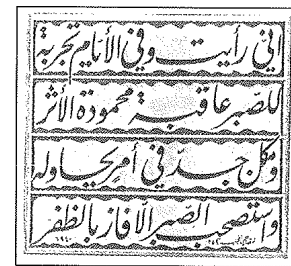 اني رأيت وفي الأنام تجربة
للصبر عاقبة محمودة الأثر
وكل جد في أمر يحاوله
واستصحب الصبر الا فاز بالظفر